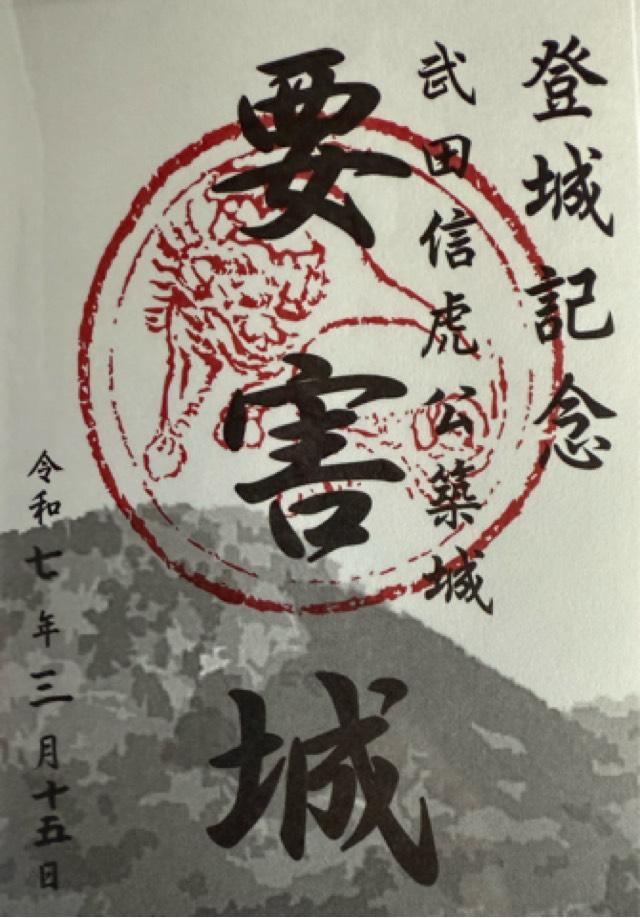 登城記念
武田信虎公築城
要害城
令和七年三月十五日